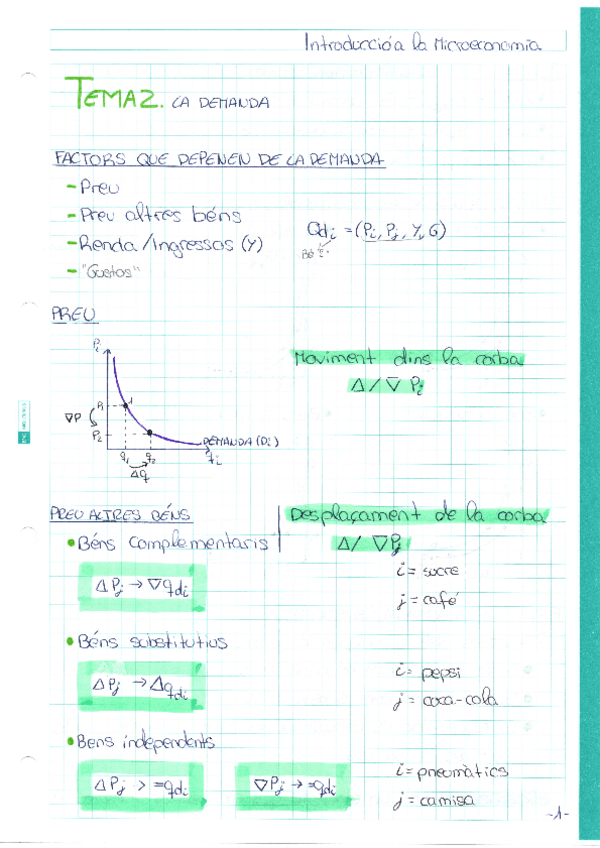 Introducció a la Microeconomia
TEMA 2. LA DEMANDA
FACTORS QUE DEPENEN DE LA DEMANDA
- Preu
- Preu altres béns
- Renda / Ingressos (Y)
- "Gustos"
Qdi = (Pi, Pj, Y, G)
Bé
PREU
Pi
P1
1
∇P
P2
DEMANDA (Di)
q1 q2 qi
Δq
Moviment dins la corba
Δ / ∇ Pi
PREU ALTRES BÉNS
Desplaçament de la corba
Δ / ∇ Pj
• Béns complementaris
i = sucre
Δ Pj → ∇ qdi
j = café
• Béns substitutius
i = pepsi
Δ Pj → Δ qdi
j = coca-cola
• Bens independents
i = pneumàtics
Δ Pj > = qdi
∇ Pj → = qdi
j = camisa
-1-